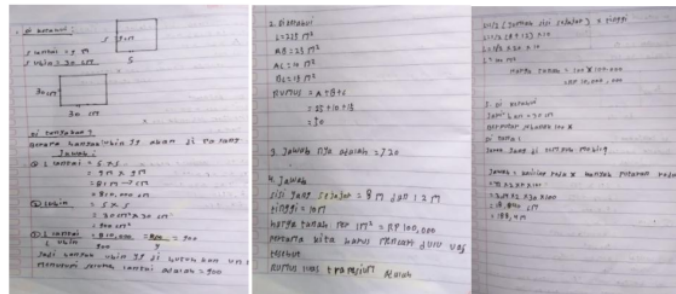 1. di ketahui :
s lantai = 9 m
s ubin = 30 cm
s
5
30 cm
30 cm
di tanyakan ?
Berapa banyak ubin yg akan di pasang
Jawab :
① L lantai = s x s
= 9 m x 9 m
= 81 m → cm
= 810.000 cm
② L ubin = s x s
= 30 cm x 30 cm
= 900 cm²
③ L lantai = 810.000 = = 900
L ubin 900 9
Jadi banyak ubin yg di butuhkan un
menutupi seluruh lantai adalah = 900
2. Diketahui
L = 225 m²
AB = 25 m²
AC = 10 m²
BC = 15 m²
Rumus = A + B + C
= 25 + 10 + 15
= 50
3. Jawab nya adalah = 720
4. Jawab
sisi yang sejajar = 8 m dan 12 m
tinggi = 10 m
harga tanah per 1 m² = RP 100.000
pertama kita harus mencari dulu
tersebut
Rumus luas trapesium adalah
L = 1/2 (Jumlah sisi sejajar) x tinggi
L = 1/2 (8 + 12) x 10
L = 1/2 x 20 x 10
L = 100 m²
Harga tanah = 100 x 100.000
= RP 10.000.000
5. di ketahui
Jari² ban = 30 cm
berputar sebanyak 100 x
di tanya :
Jarak yang di tempuh mobil
Jawab = keliling roda x banyak putaran roda
= 2 x 100
= 3,14 x 2 x 30 x 100
= 18.840 cm
= 188,4 m